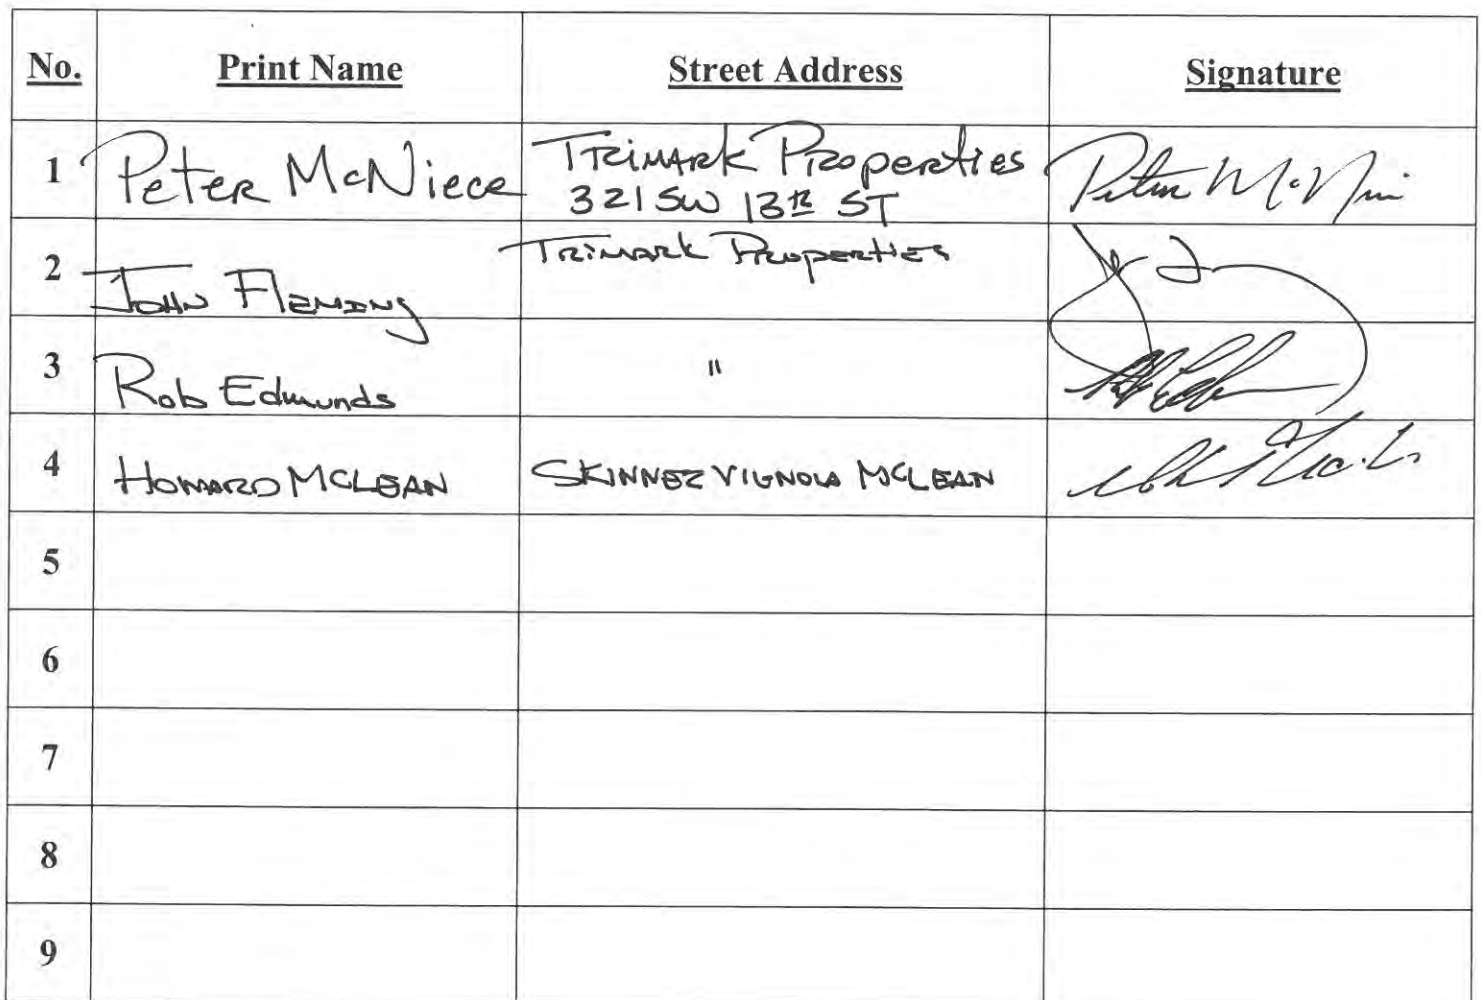 No. Print Name Street Address Signature
1 Peter McNiece Trimark Properties Peter McNiece
321 SW 13th ST
2 John Fleming Trimark Properties
3 Rob Edmunds "
4 HOWARD MCLEAN SKINNER VIGNOLA MCLEAN
5
6
7
8
9